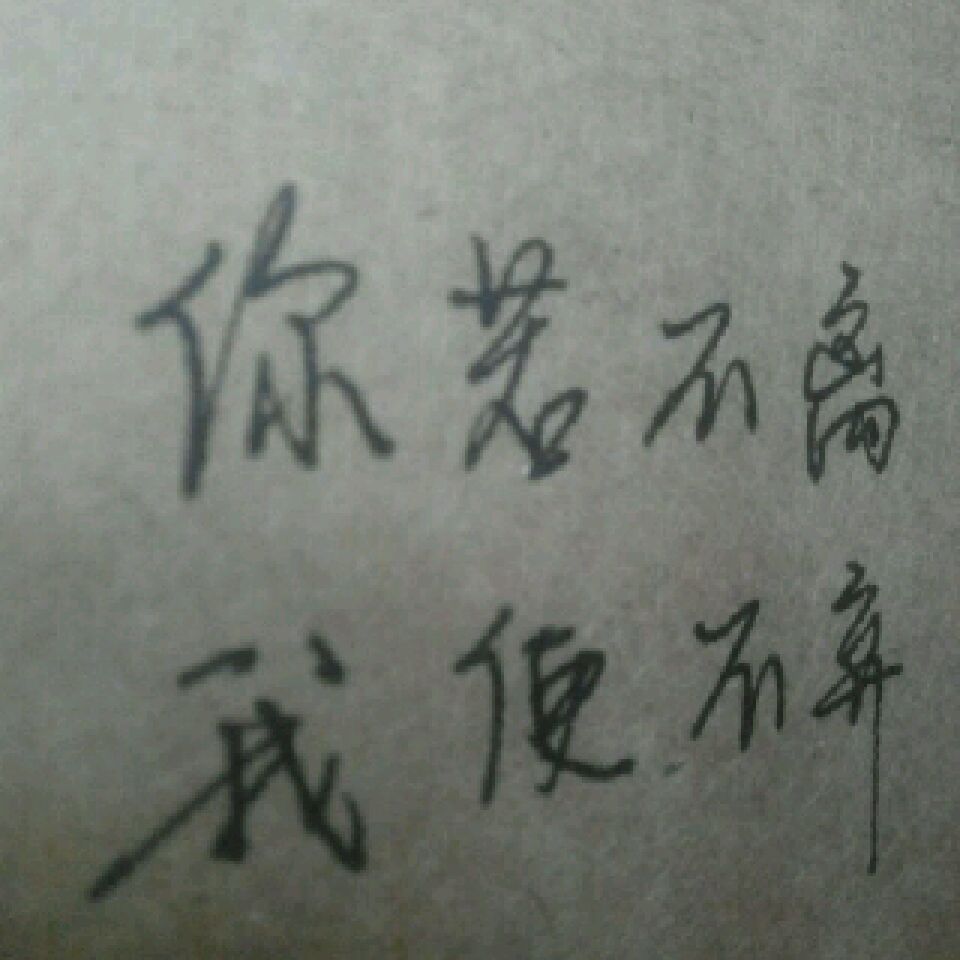 你若不离
我便不弃